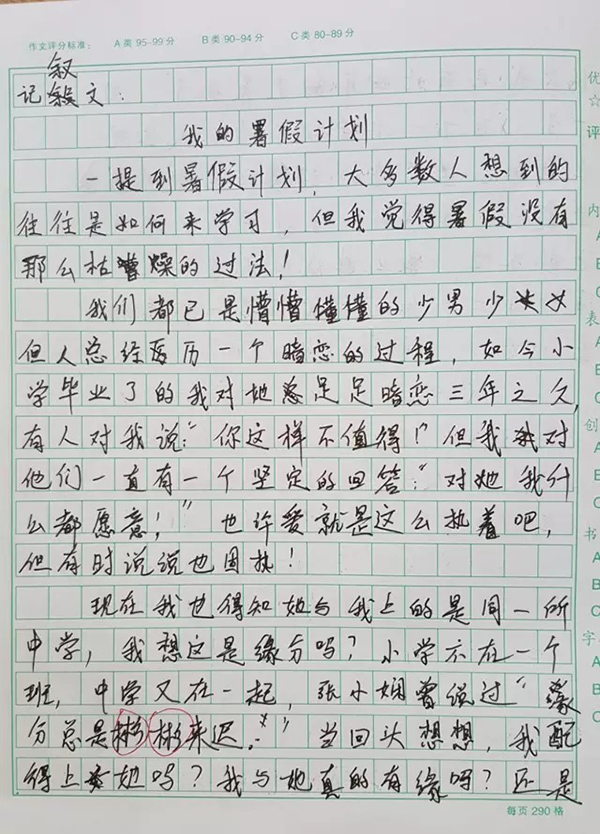 作文评分标准： A类95-99分 B类90-94分 C类80-89分
叙
记叙文：
我的暑假计划
一提到暑假计划，大多数人想到的
往往是如何来学习，但我觉得暑假没有
那么枯燥的过法！
我们都已是懵懵懂懂的少男少女
但人总经历一个暗恋的过程，如今小
学毕业了的我对她总足足暗恋三年之久，
有人对我说："你这样不值得！"但我对
他们一直有一个坚定的回答："对她我什
么都愿意！"也许爱就是这么执着吧，
但有时说说也固执！
现在我也得知她与我上的是同一所
中学，我想这是缘分吗？小学不在一个
班，中学又在一起，张小娴曾说过"缘
分总是彬彬来迟。"当回头想想，我配
得上她吗？我与她真的有缘吗？还是
每页290格
优
☆
评
内
A
B
C
表
A
B
C
创
A
B
C
书
A
B
C
字
A
B